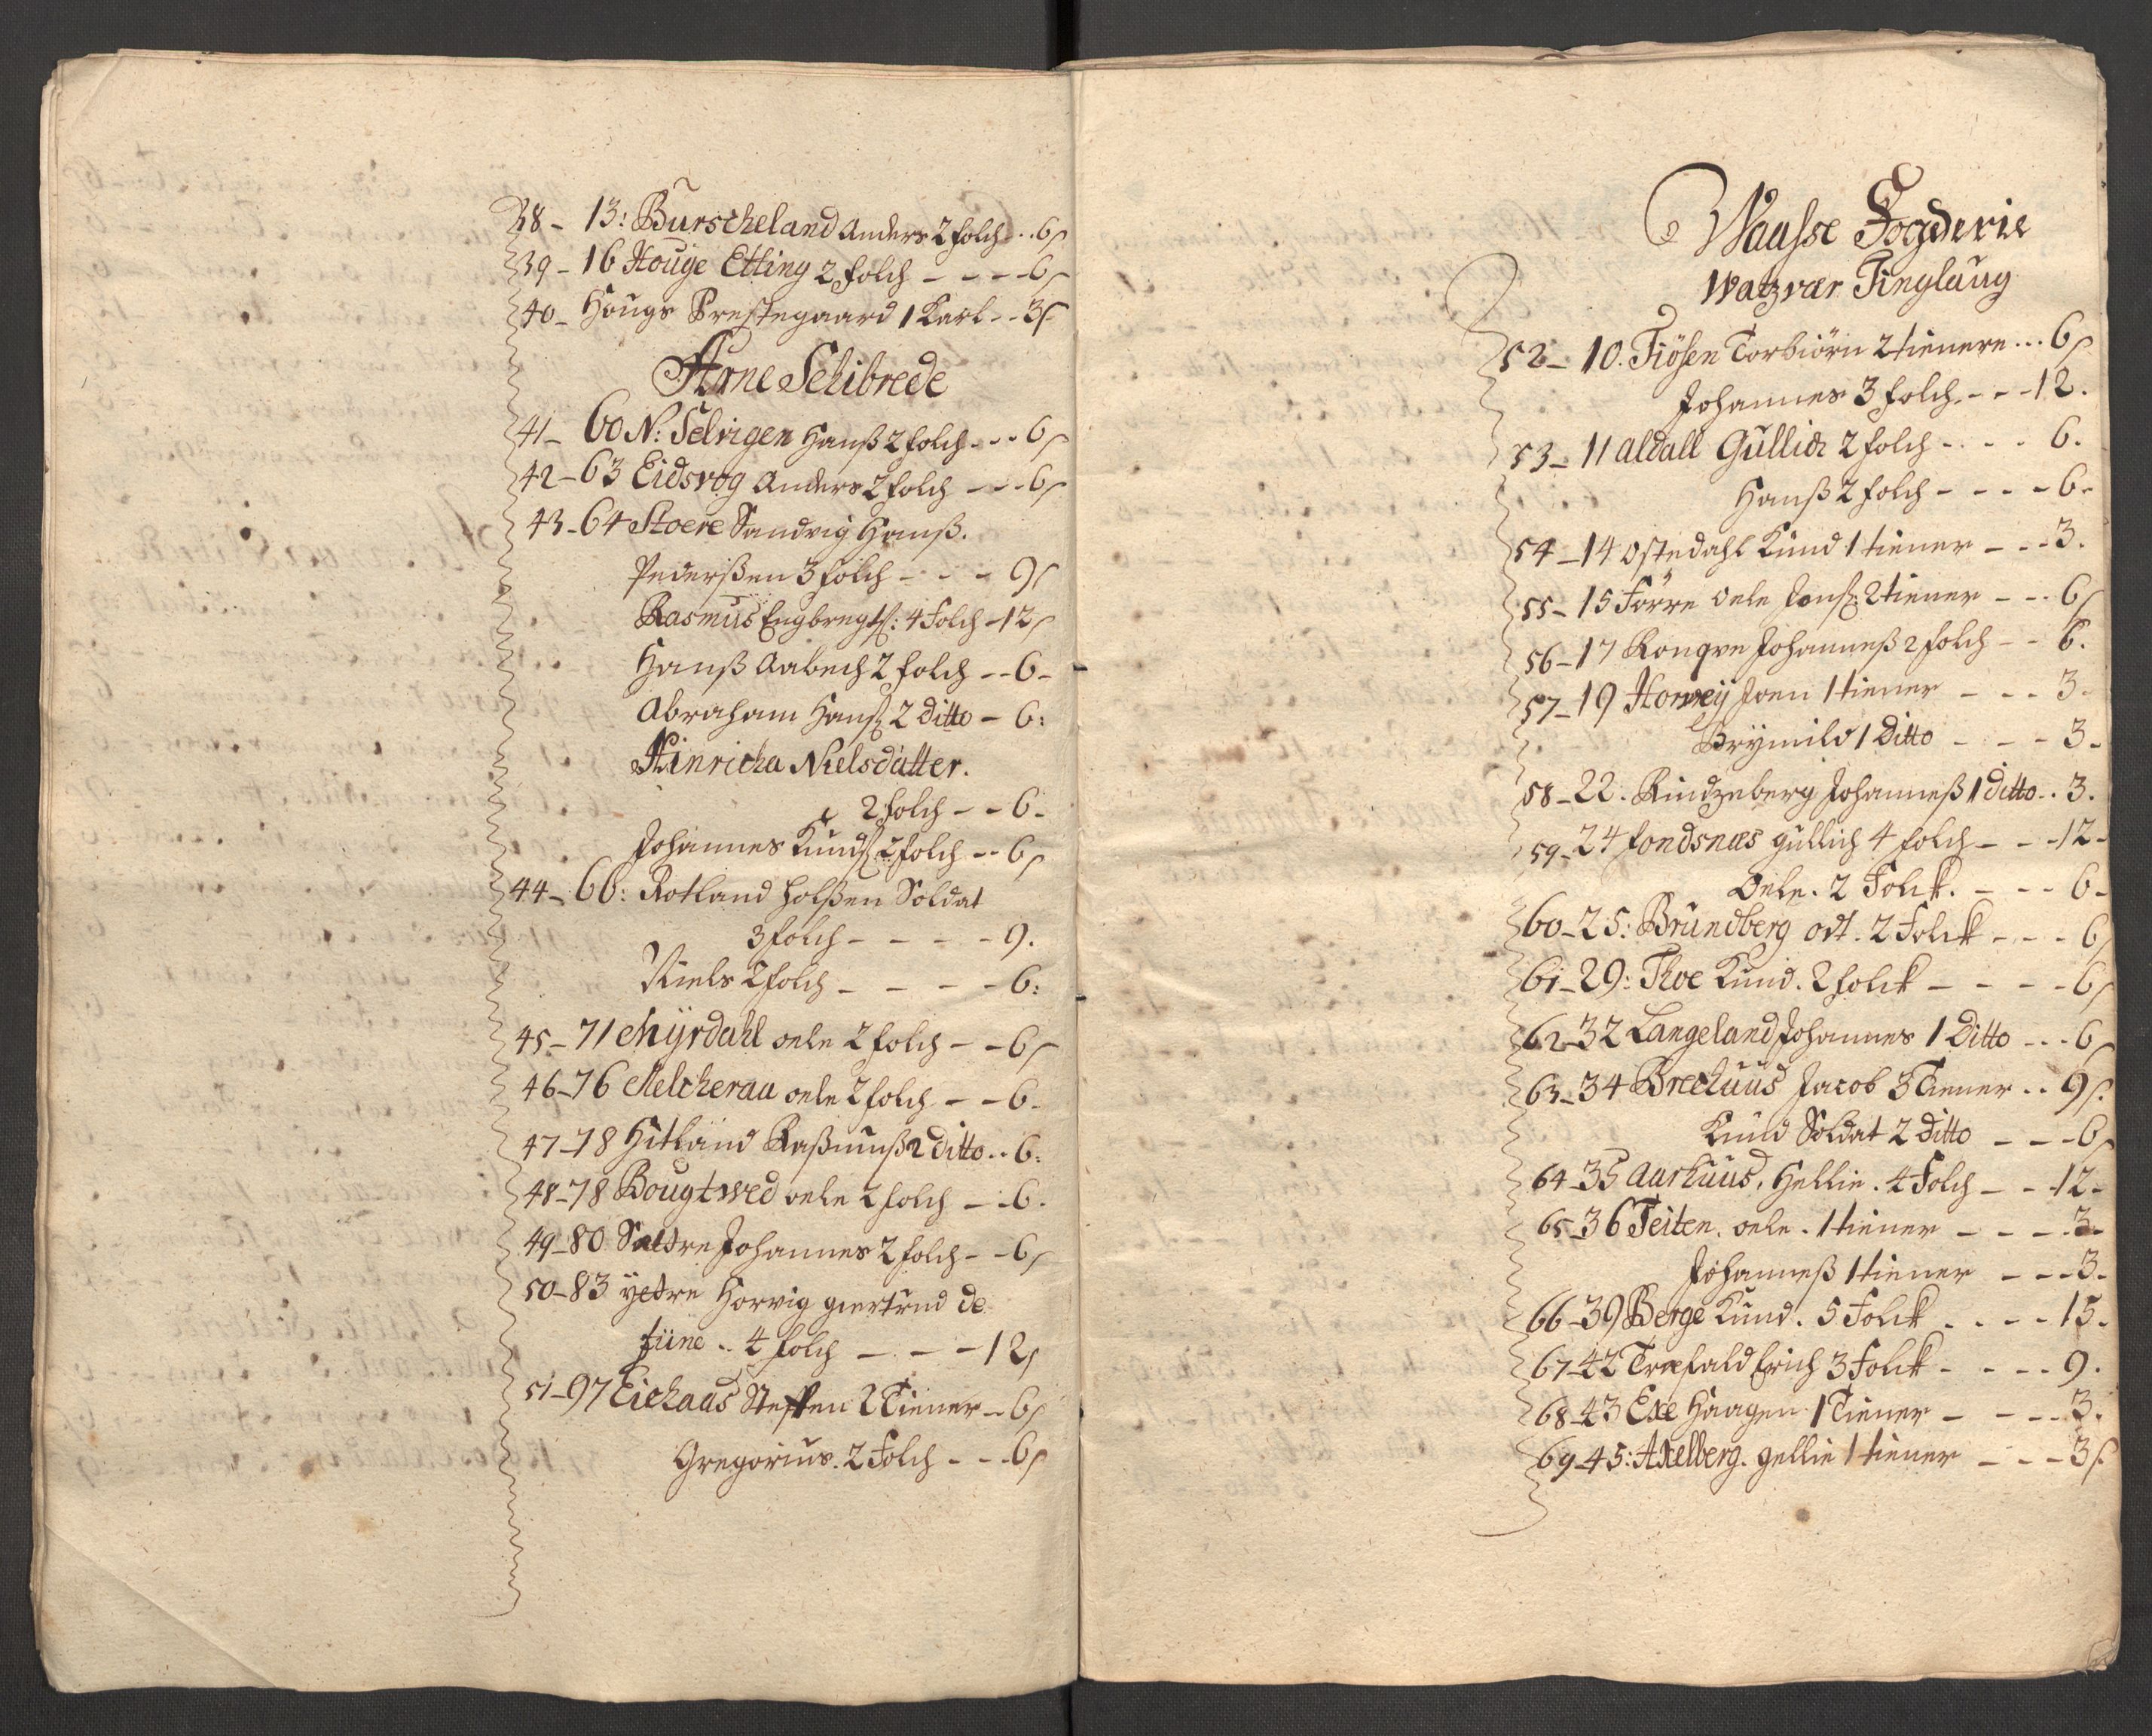 38 - 13: Burscheland Anders 2 folch .. 6 s
39 - 16 Houge Elling 2 folch - - - - 6 s
40 - Hougs Prestegaard 1 Karl - - 3 s
Arne Schibrede
41 - 60 N: Selvigen Hanß 2 folch - - - 6 s
42 - 63 Eidsvog Anders 2 folch - - - 6 s
43 - 64 Stoere Sandvig Hanß.
Pederßen 3 folch - - - 9 s
Rasmus Engbregts: 4 Folch - 12 s
Hanß Aabech 2 folch - - 6 -
Abraham Hans: 2 ditto - 6:
Hinricha Nielsdatter.
2 folch - - 6 -
Johannes Knuds 2 folch - - 6 s
44 - 66: Rotland Soldat
3 folch - - - - - 9.
Niels 2 folch - - - - 6:
45 - 71 Myrdahl oele 2 folch - - 6 s
46 - 76 Melcherau oele 2 folch - - 6 -
47 - 78 Hitland Raßmuß 2 ditto .. 6:
48 - 78 Bougtwed oele 2 folch - - 6.
49 - 80 Sætre Johannes 2 folch - - 6 s
50 - 83 ytre Horvig giertrud de
Fine .. 4 folch - - - 12 s
51 - 97 Eichaas Steffen 2 Tiener - 6 s
Gregorius. 2 Folch - - - 6 s
Waasse Fogderie
Watzvær Tinglaug
52 - 10. Tiösen Torbiörn 2 tienere ... 6 s
Johannes 3 folch - - - 12.
53 - 11 aldall Gullich 2 folch - - - 6.
Hanß 2 folch - - - - 6 -
54 - 14 ostedahl Knud 1 tiener - - - 3.
55 - 15 Förre oele Jons: 2 tiener - - - 6 s
56 - 17 Ronqve Johanneß 2 folch - - 6.
57 - 19 Horvey Joen 1 tiener - - - 3 -
Brÿmild 1 Ditto - - - 3 -
58 - 22. Rindzeberg Johanneß 1 ditto .. 3.
59 - 24 fondsnæs gullich 4 folch - - - 12 -
Oele. 2 Folck. - - - 6 -
60 - 25: Brundberg ort. 2 Folck - - - 6 s
61 - 29: Thoe Knud. 2 folck - - - - 6 s
62 - 32 Langeland Johannes 1 Ditto - - - 6 s
63 - 34 Brechuus Jacob 3 Tiener .. 9 s.
Knud Soldat 2 ditto - - - 6 s
64 - 35 Aarhuus. Hellie. 4 Folch - - 12 -
65 - 36 Teiten. oele. 1 tiener - - - - 3 -
Johanneß 1 tiener - - - 3 -
66 - 39 Berge Knud. 5 Folck . - - - 15 -
67 - 42 Træfald Erich 3 Folck - - - - 9.
68 - 43 Exe Haagen 1 Tiener - - - - 3.
69 - 45: Axelberg. gellie 1 tiener - - - 3 s